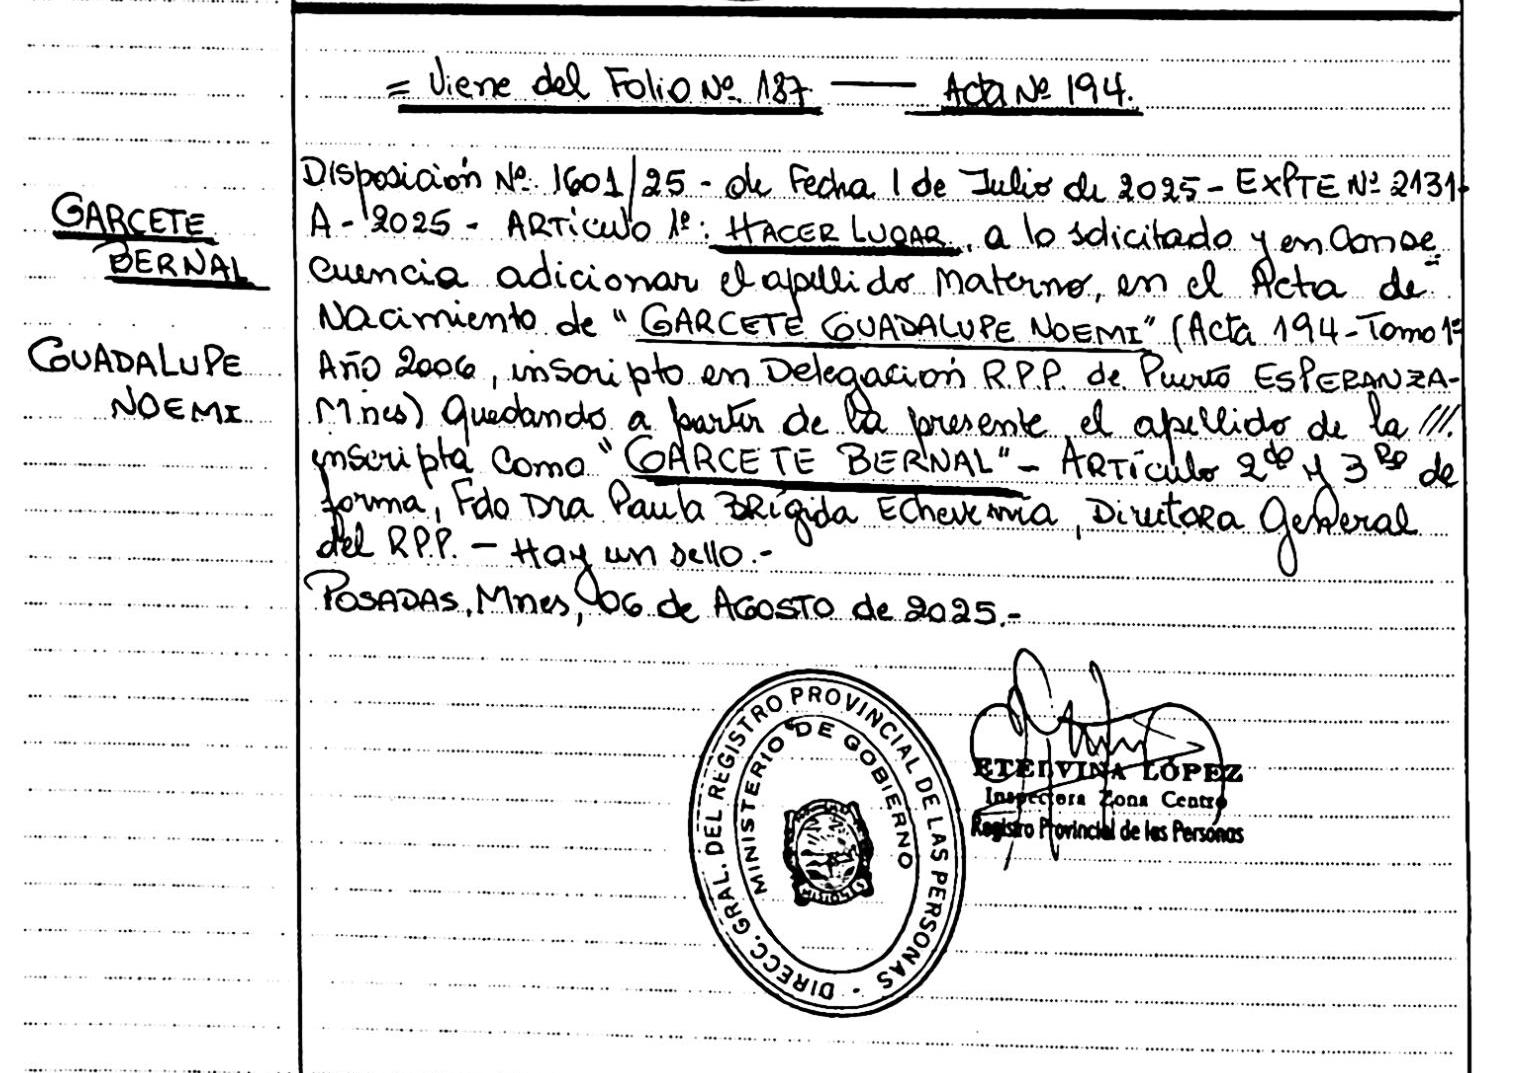 = Viene del Folio Nº 187 — Acta Nº 194.
GARCETE
BERNAL
GUADALUPE
NOEMI
Disposición Nº 1601/25 - de Fecha 1 de Julio de 2025 - EXPTE Nº 2131-
A - 2025 - ARTiculo 1º: HACER LUGAR, a lo solicitado y en Conse
cuencia adicionar el apellido Materno, en el Acta de
Nacimiento de "GARCETE GUADALUPE NOEMI" (Acta 194 - Tomo 1º
Año 2006, inscripto en Delegación R.P.P. de Puerto ESPERANZA -
Mnes) Quedando a partir de la presente el apellido de la ///.
inscripta Como "GARCETE BERNAL" - ARTículo 2do y 3ro de
forma, Fdo Dra Paula BRígida Echeverría, DirectoRa General
del R.P.P. - Hay un sello.-
POSADAS, Mnes, 06 de AGOSTO de 2025.-
DIRECC. GRAL. DEL REGISTRO PROVINCIAL DE LAS PERSONAS -
MINISTERIO DE GOBIERNO
MISIONES
ETELVINA LÓPEZ
Inspectora Zona Centro
Registro Provincial de las Personas